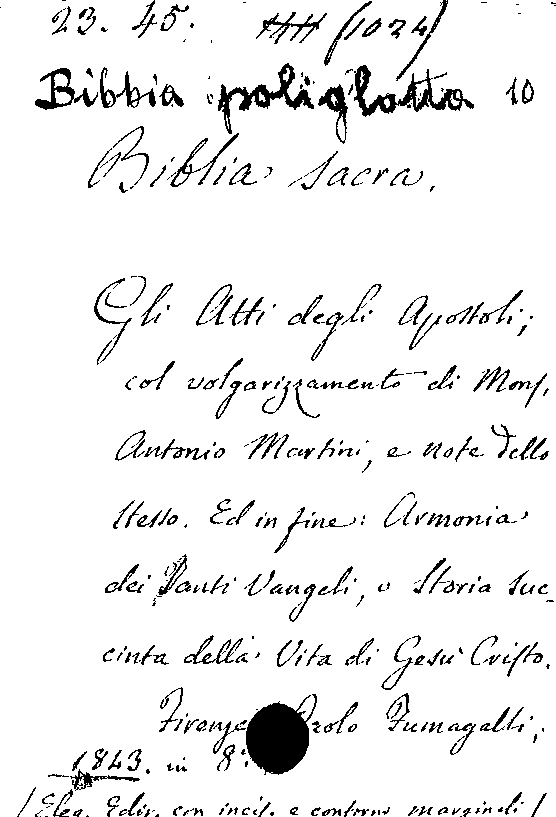 23. 45. (1024)
Bibbia poliglotta 10
Biblia sacra.
Gli Atti degli Apostoli;
col volgarizzamento di Mons.
Antonio Martini, e note dello
stesso. Ed in fine: Armonia
dei Santi Vangeli, o Storia suc-
cinta della Vita di Gesù Cristo.
Firenze Paolo Fumagalli,
1843. in 8°.
(Eleg. Ediz. con incis. e contorni marginali)